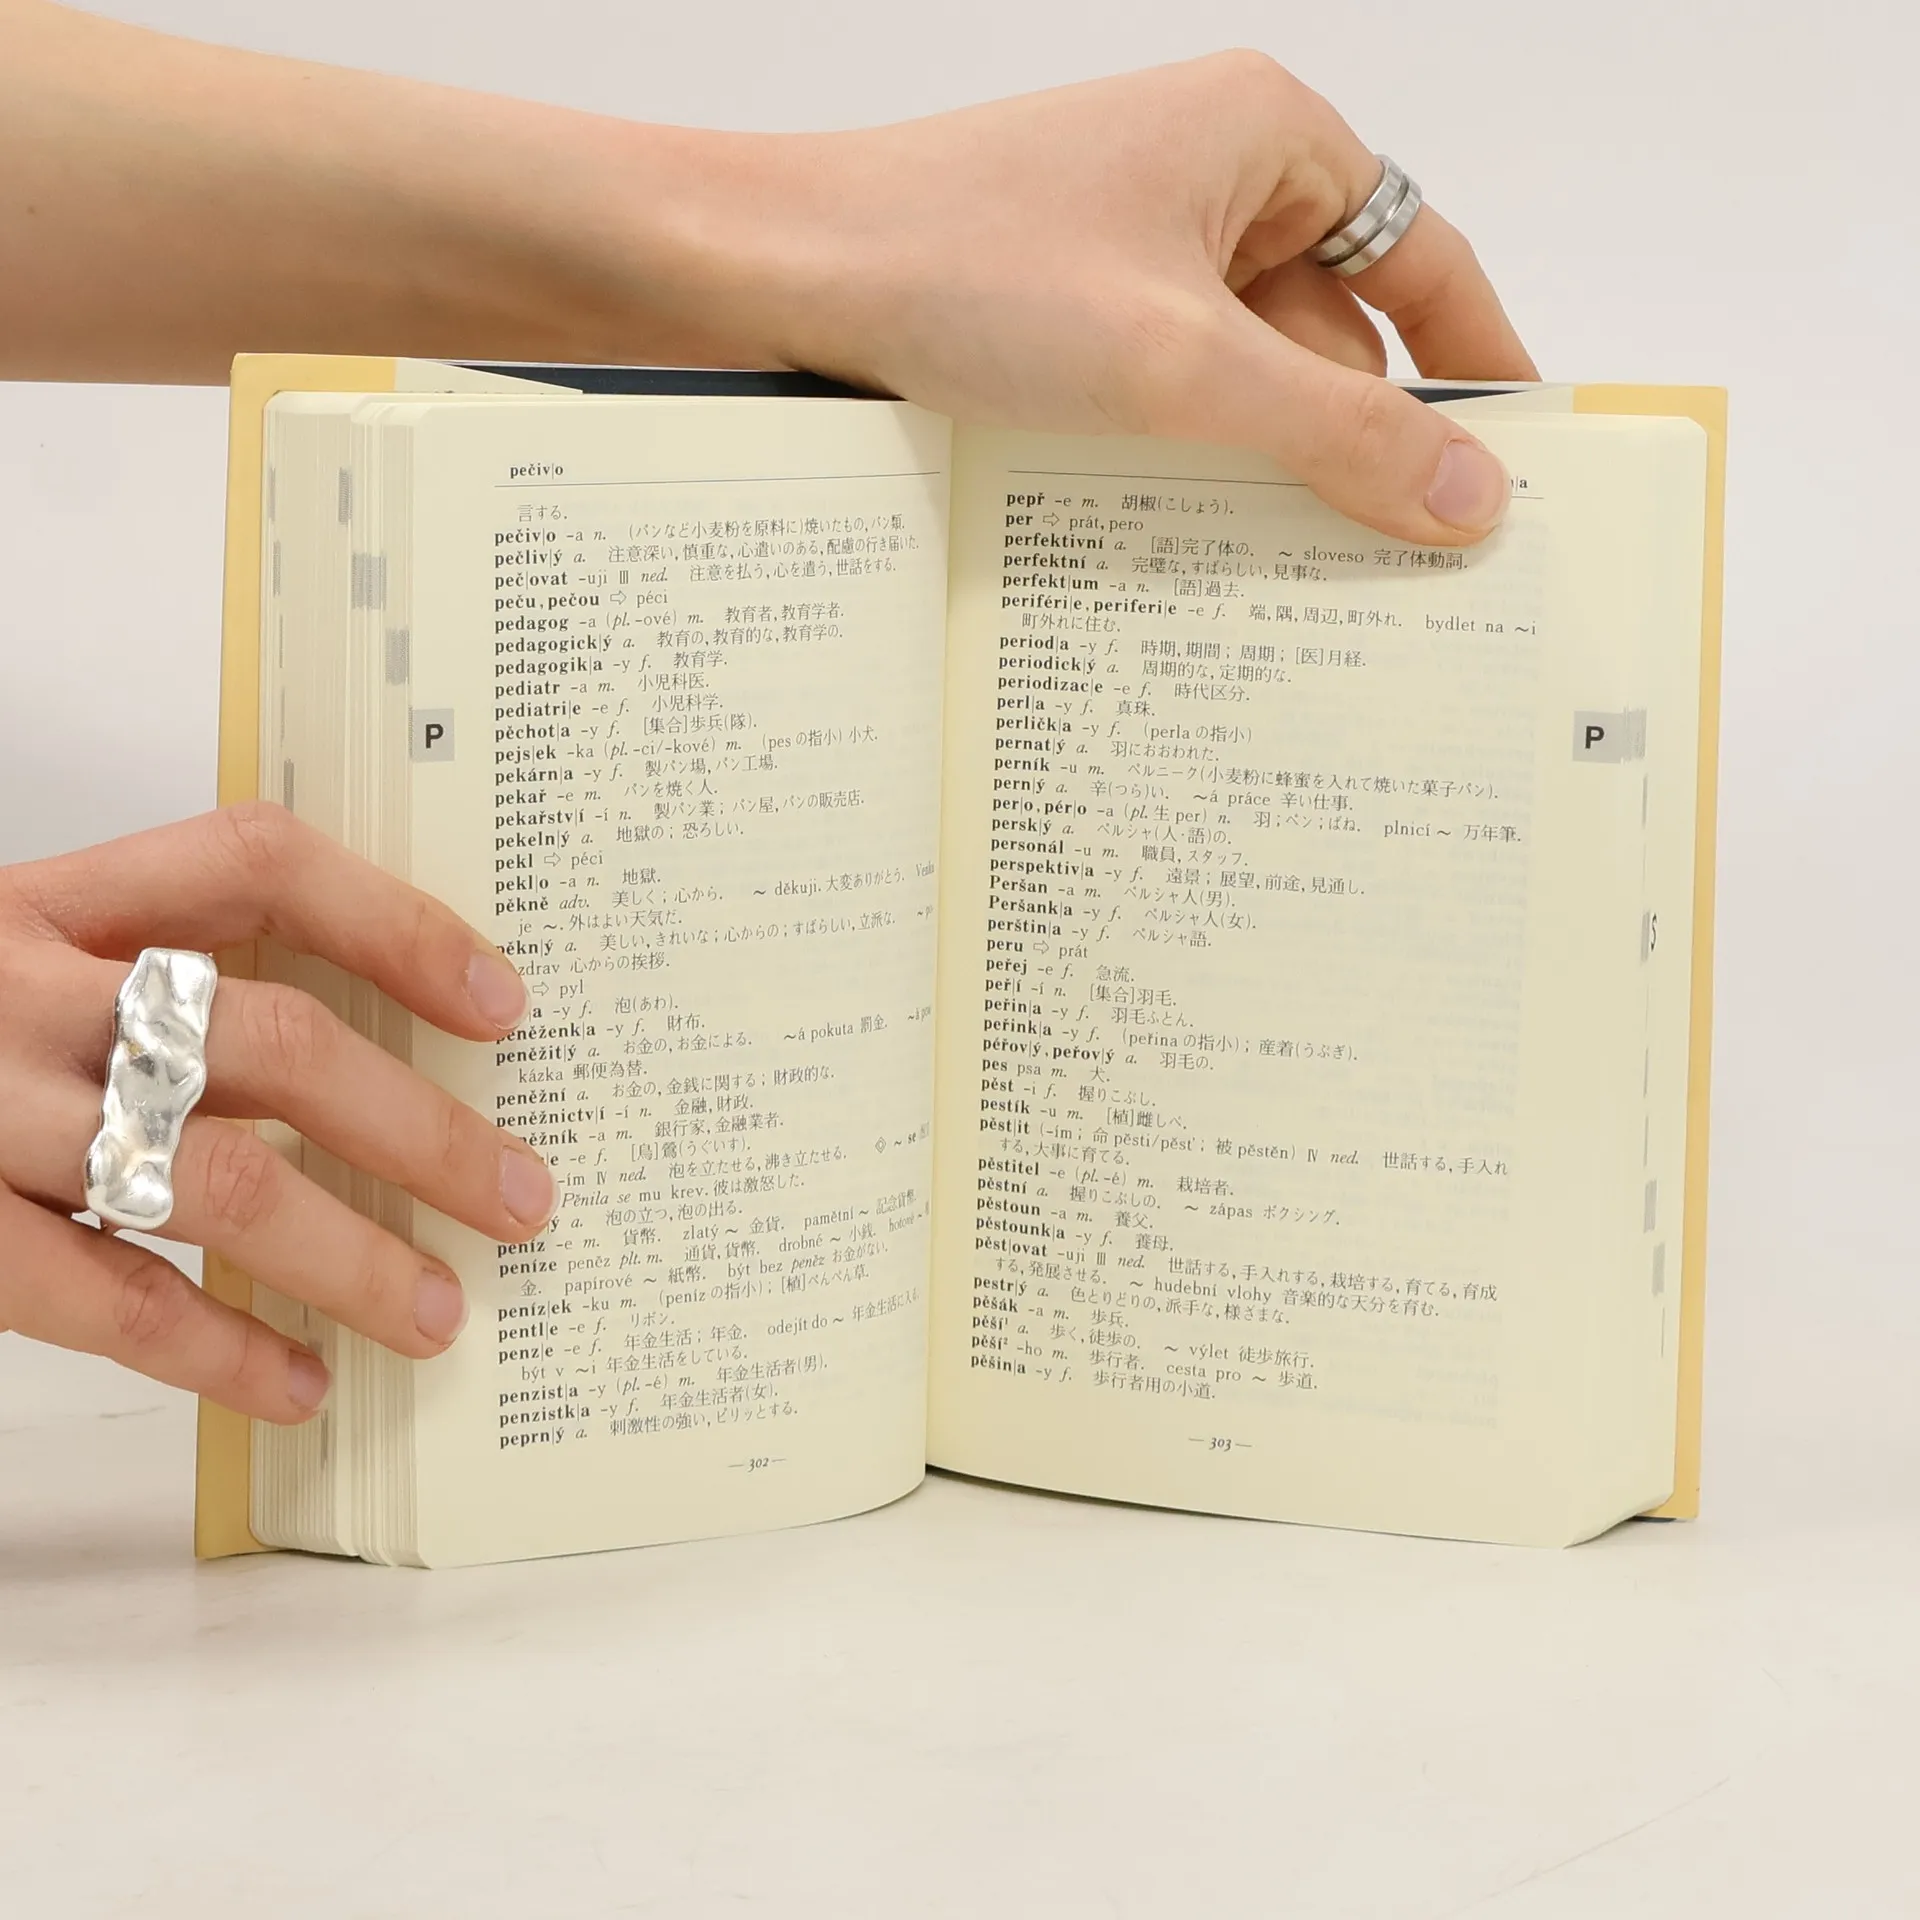 pečiv|o
言する.
pečiv|o -a n. (パンなど小麦粉を原料に)焼いたもの, パン類.
pečliv|ý a. 注意深い, 慎重な, 心遣いのある, 配慮の行き届いた.
peč|ovat -uji Ⅲ ned. 注意を払う, 心を遣う, 世話をする.
peču, pečou ⇨ péci
pedagog -a (pl. -ové) m. 教育者, 教育学者.
pedagogick|ý a. 教育の, 教育的な, 教育学の.
pedagogik|a -y f. 教育学.
pediatr -a m. 小児科医.
pediatri|e -e f. 小児科学.
pěchot|a -y f. [集合]歩兵(隊).
pejs|ek -ka (pl. -ci/-kové) m. (pes の指小) 小犬.
pekárn|a -y f. 製パン場, パン工場.
pekař -e m. パンを焼く人.
pekařstv|í -í n. 製パン業; パン屋, パンの販売店.
pekeln|ý a. 地獄の; 恐ろしい.
pekl ⇨ péci
pekl|o -a n. 地獄.
pěkně adv. 美しく; 心から. ~ děkuji. 大変ありがとう. Venku
je ~. 外はよい天気だ.
pěkn|ý a. 美しい, きれいな; 心からの; すばらしい, 立派な.
zdrav 心からの挨拶.
⇨ pyl
|a -y f. 泡(あわ).
peněženk|a -y f. 財布.
peněžit|ý a. お金の, お金による. ~á pokuta 罰金.
kázka 郵便為替.
peněžní a. お金の, 金銭に関する; 財政的な.
peněžnictv|í -í n. 金融, 財政.
něžník -a m. 銀行家, 金融業者.
|e -e f. [鳥]鶯(うぐいす).
-ím Ⅳ ned. 泡を立たせる, 沸き立たせる. ◇ ~ se
Pěnila se mu krev. 彼は激怒した.
ý a. 泡の立つ, 泡の出る.
peníz -e m. 貨幣. zlatý ~ 金貨. pamětní ~ 記念貨幣.
peníze peněz plt. m. 通貨, 貨幣. drobné ~ 小銭. hotové ~
金. papírové ~ 紙幣. být bez peněz お金がない.
peníz|ek -ku m. (peníz の指小); [植]ぺんぺん草.
pentl|e -e f. リボン.
penz|e -e f. 年金生活; 年金. odejít do ~ 年金生活に入る.
být v ~i 年金生活をしている.
penzist|a -y (pl. -é) m. 年金生活者(男).
penzistk|a -y f. 年金生活者(女).
peprn|ý a. 刺激性の強い, ピリッとする.
— 302 —
P
|a
pepř -e m. 胡椒(こしょう).
per ⇨ prát, pero
perfektivní a. [語]完了体の. ~ sloveso 完了体動詞.
perfektní a. 完璧な, すばらしい, 見事な.
perfekt|um -a n. [語]過去.
periféri|e, periferi|e -e f. 端, 隅, 周辺, 町外れ. bydlet na ~i
町外れに住む.
period|a -y f. 時期, 期間; 周期; [医]月経.
periodick|ý a. 周期的な, 定期的な.
periodizac|e -e f. 時代区分.
perl|a -y f. 真珠.
perličk|a -y f. (perla の指小)
pernat|ý a. 羽におおわれた.
perník -u m. ペルニーク(小麦粉に蜂蜜を入れて焼いた菓子パン).
pern|ý a. 辛(つら)い. ~á práce 辛い仕事.
per|o, pér|o -a (pl. 生 per) n. 羽; ペン; ばね. plnicí ~ 万年筆.
persk|ý a. ペルシャ(人·語)の.
personál -u m. 職員, スタッフ.
perspektiv|a -y f. 遠景; 展望, 前途, 見通し.
Peršan -a m. ペルシャ人(男).
Peršank|a -y f. ペルシャ人(女).
perštin|a -y f. ペルシャ語.
peru ⇨ prát
peřej -e f. 急流.
peř|í -í n. [集合]羽毛.
peřin|a -y f. 羽毛ふとん.
peřink|a -y f. (peřina の指小); 産着(うぶぎ).
péřov|ý, peřov|ý a. 羽毛の.
pes psa m. 犬.
pěst -i f. 握りこぶし.
pestík -u m. [植]雌しべ.
pěst|it (-ím; 命 pěsti/pěsť; 被 pěstěn) Ⅳ ned. 世話する, 手入れ
する, 大事に育てる.
pěstitel -e (pl. -é) m. 栽培者.
pěstní a. 握りこぶしの. ~ zápas ボクシング.
pěstoun -a m. 養父.
pěstounk|a -y f. 養母.
pěst|ovat -uji Ⅲ ned. 世話する, 手入れする, 栽培する, 育てる, 育成
する, 発展させる. ~ hudební vlohy 音楽的な天分を育む.
pestr|ý a. 色とりどりの, 派手な, 様ざまな.
pěšák -a m. 歩兵.
pěší¹ a. 歩く, 徒歩の. ~ výlet 徒歩旅行.
pěší² -ho m. 歩行者. cesta pro ~ 歩道.
pěšin|a -y f. 歩行者用の小道.
— 303 —
P
S